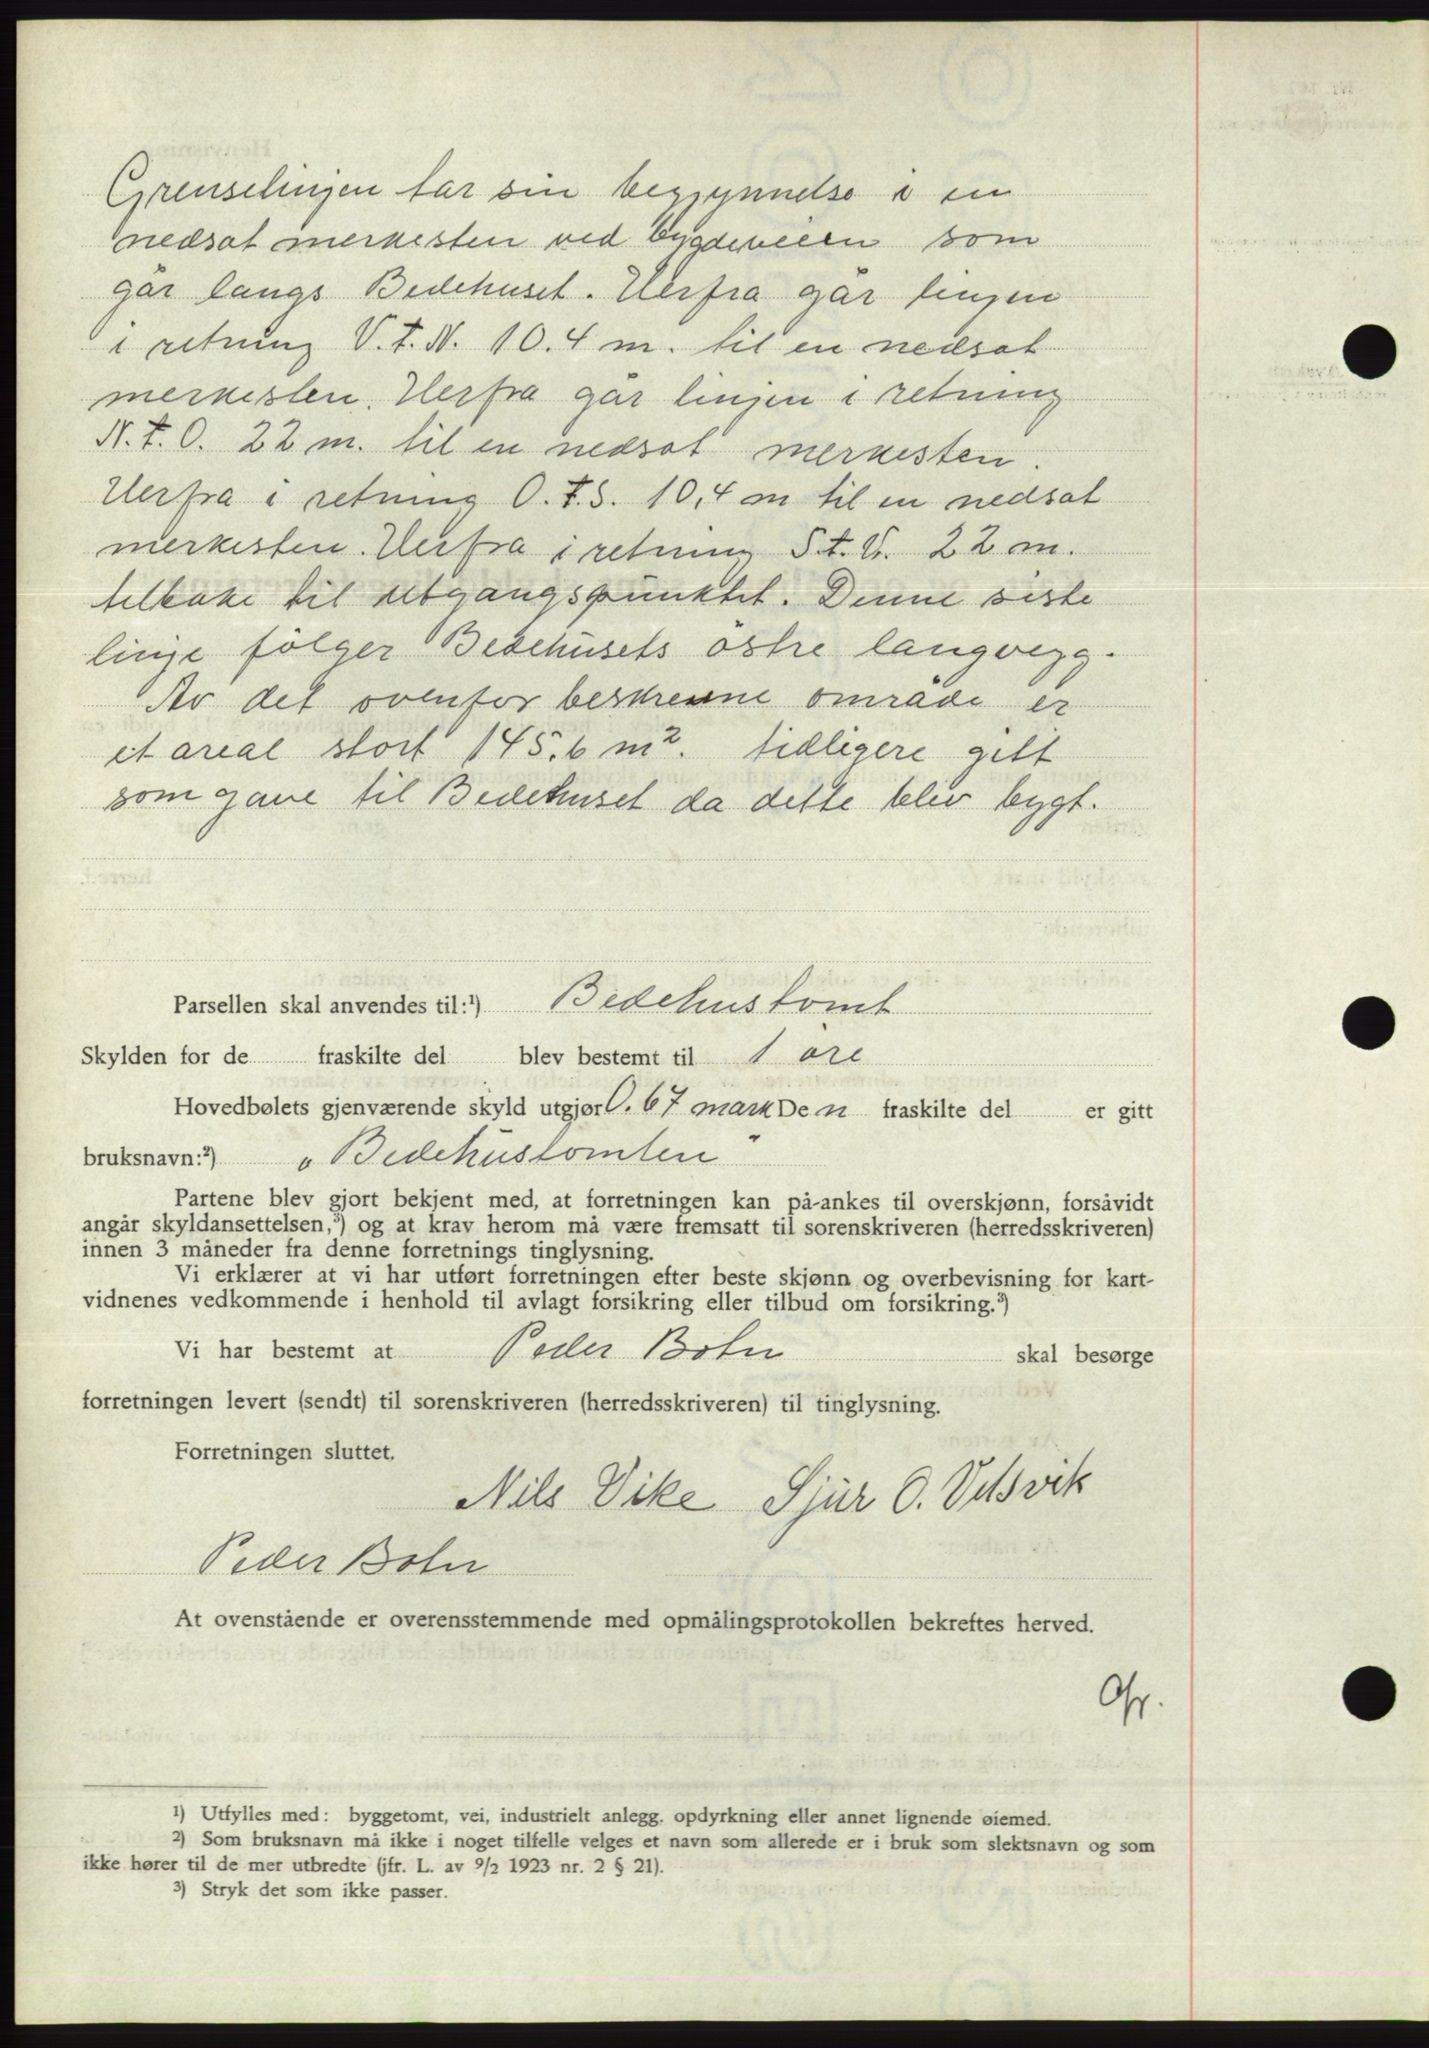 Grenselinjen tar sin begynnelse i en
nedsat merkesten ved bygdeveien som
går langs Bedehuset. Herfra går linjen
i retning V.t.N. 10.4 m. til en nedsat
merkesten. Herfra går linjen i retning
N.t.O. 22 m. til en nedsat merkesten.
Herfra i retning O.t.S. 10,4 m til en nedsat
merkesten. Herfra i retning S.t.V. 22 m.
tilbake til utgangspunktet. Denne siste
linje følger Bedehusets østre langvegg.
Av det ovenfor beskrevne område er
et areal stort 145.6 m². tidligere gitt
som gave til Bedehuset da dette blev bygt.
Parsellen skal anvendes til:¹) Bedehustomt
Skylden for de fraskilte del blev bestemt til 1 øre
Hovedbølets gjenværende skyld utgjør 0.67 mark De n fraskilte del er gitt
bruksnavn:²) „Bedehustomten"
Partene blev gjort bekjent med, at forretningen kan på-ankes til overskjønn, forsåvidt
angår skyldansettelsen,³) og at krav herom må være fremsatt til sorenskriveren (herredsskriveren)
innen 3 måneder fra denne forretnings tinglysning.
Vi erklærer at vi har utført forretningen efter beste skjønn og overbevisning for kart-
vidnenes vedkommende i henhold til avlagt forsikring eller tilbud om forsikring.³)
Vi har bestemt at Peder Botn skal besørge
forretningen levert (sendt) til sorenskriveren (herredsskriveren) til tinglysning.
Forretningen sluttet.
Nils Vike Sjur O. Velsvik
Peder Botn
At ovenstående er overensstemmende med opmålingsprotokollen bekreftes herved.
¹) Utfylles med: byggetomt, vei, industrielt anlegg, opdyrkning eller annet lignende øiemed.
²) Som bruksnavn må ikke i noget tilfelle velges et navn som allerede er i bruk som slektsnavn og som
ikke hører til de mer utbredte (jfr. L. av 9/2 1923 nr. 2 § 21).
³) Stryk det som ikke passer.